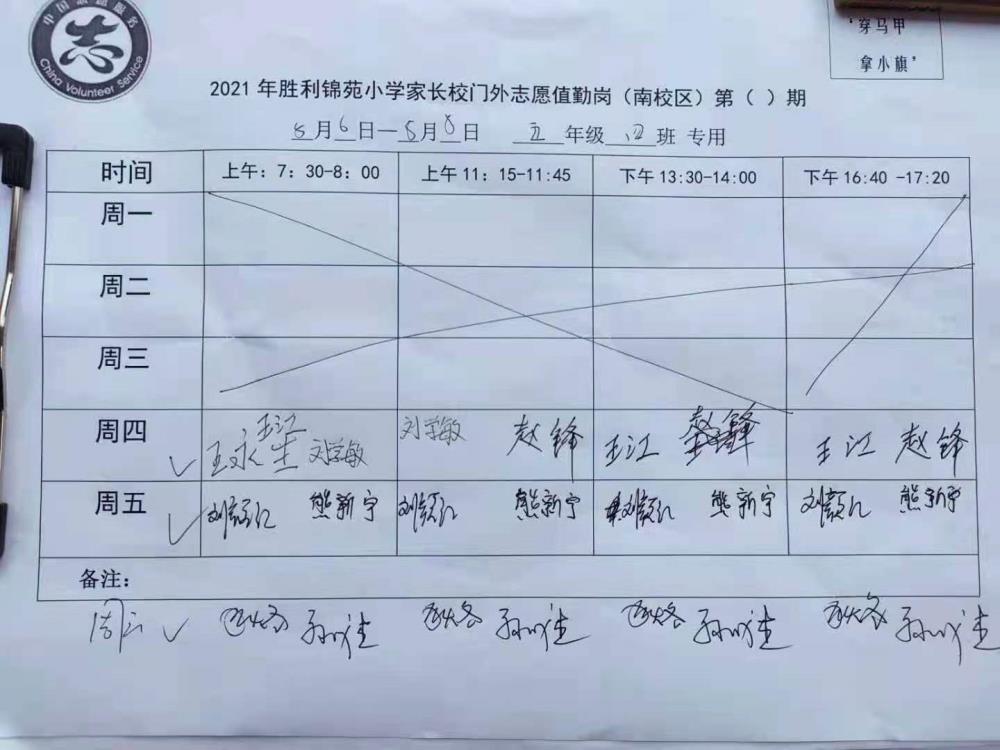 中国志愿服务
志
China Volunteer Service
'穿马甲
拿小旗'
2021年胜利锦苑小学家长校门外志愿值勤岗（南校区）第（ ）期
5月6日—5月8日 五年级四班 专用
时间 上午：7：30-8：00 上午11：15-11:45 下午13:30-14:00 下午16:40 -17:20
周一
周二
周三
周四 王江 刘学敏 刘学敏 赵锋 王江 赵锋 王江 赵锋
周五 熊新宁 熊新宁 熊新宁 熊新宁
备注：